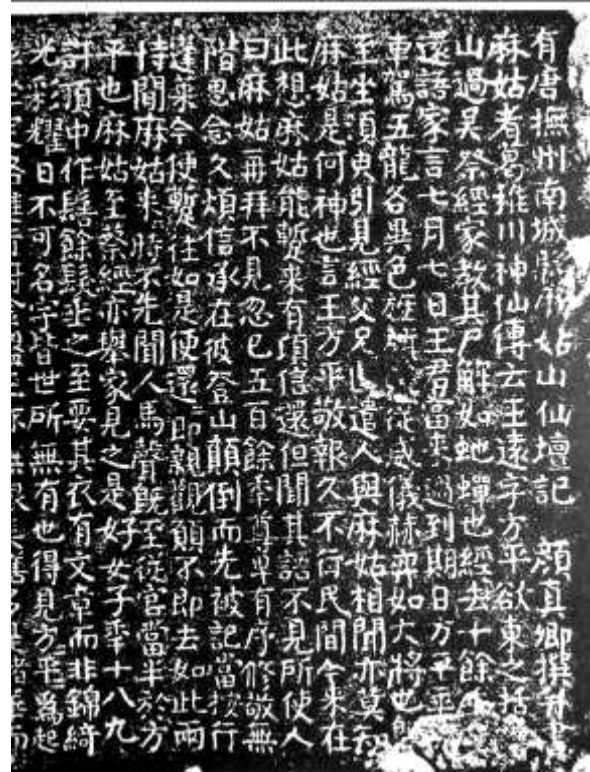 有唐撫州南城縣麻姑山仙壇記　顏真卿撰并書
麻姑者葛稚川神仙傳云王遠字方平欲東之括
山過吳蔡經家教其尸解如虵蟬也經去十餘年
還語家言七月七日王君當來過到期日方平乘
車駕五龍各異色旌旗從威儀赫弈如大將也既
至坐須臾引見經父兄因遣人與麻姑相聞亦莫知
麻姑是何神也言王方平敬報久不行民間今來在
此想麻姑能蹔來有頃信還但聞其語不見所使人
曰麻姑再拜不見忽已五百餘年尊卑有序修敬無
階思念久煩信承在彼登山顛倒而先被記當按行
蓬萊今便蹔往如是便還即親覲願不即去如此兩
時間麻姑來時不先聞人馬聲既至從官當半於方
平也麻姑至蔡經亦舉家見之是好女子年十八九
許頂中作髻餘髮垂之至要其衣有文章而非錦綺
光彩耀日不可名字皆世所無有也得見方平為起